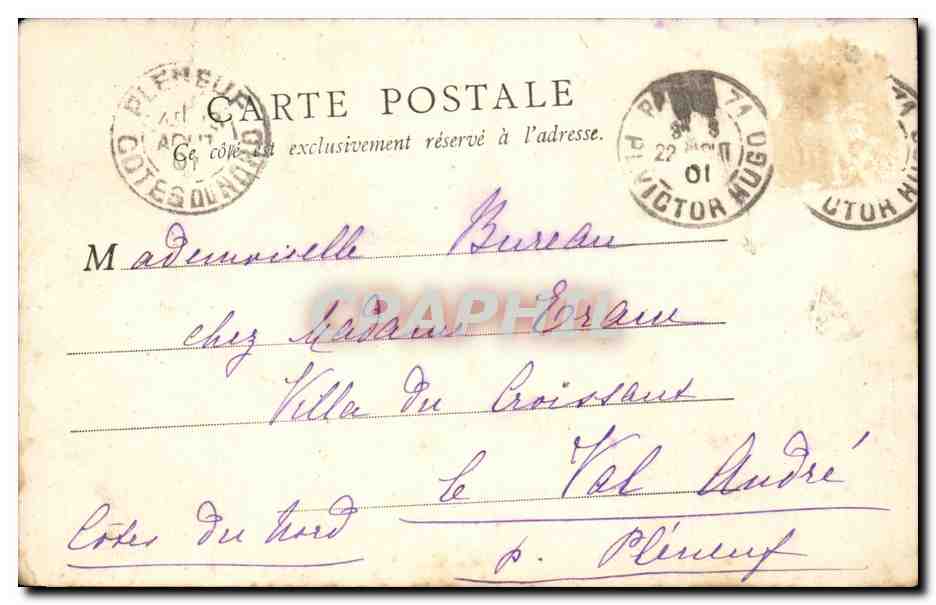 CARTE POSTALE
Ce côté est exclusivement réservé à l'adresse.
PLENEUF
AOUT
01
COTES DU NORD
PARIS 71
22 AOUT
01
PL. VICTOR HUGO
71
VICTOR HUGO
Mademoiselle Bureau
chez Madame
Villa du Croissant
le Val André
p. Pléneuf
Côtes du Nord
CRAPHIL